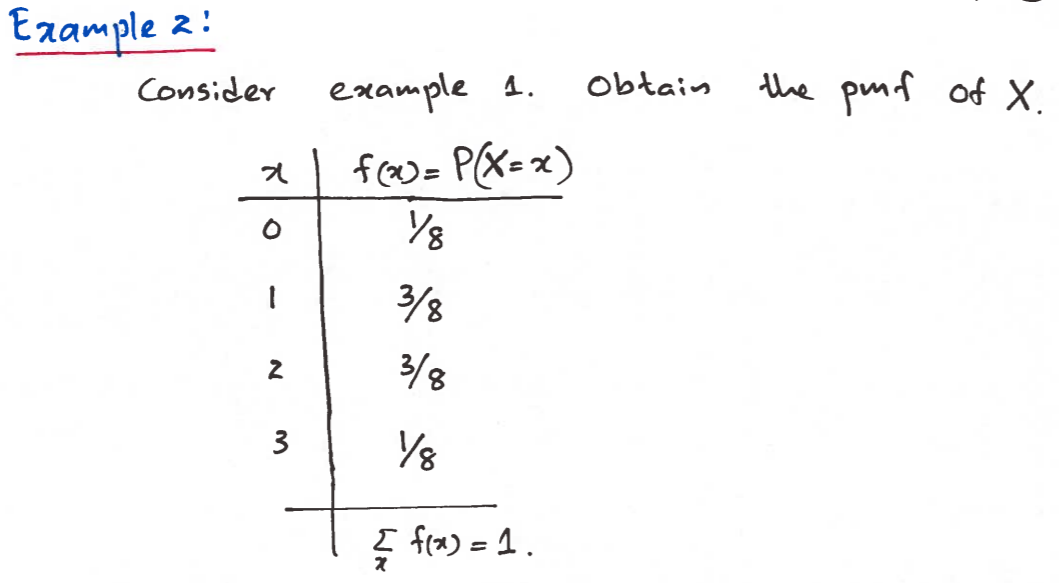 Example 2:
Consider example 1. Obtain the pmf of X.
x f(x) = P(X=x)
0 1/8
1 3/8
2 3/8
3 1/8
Σ f(x) = 1.
x